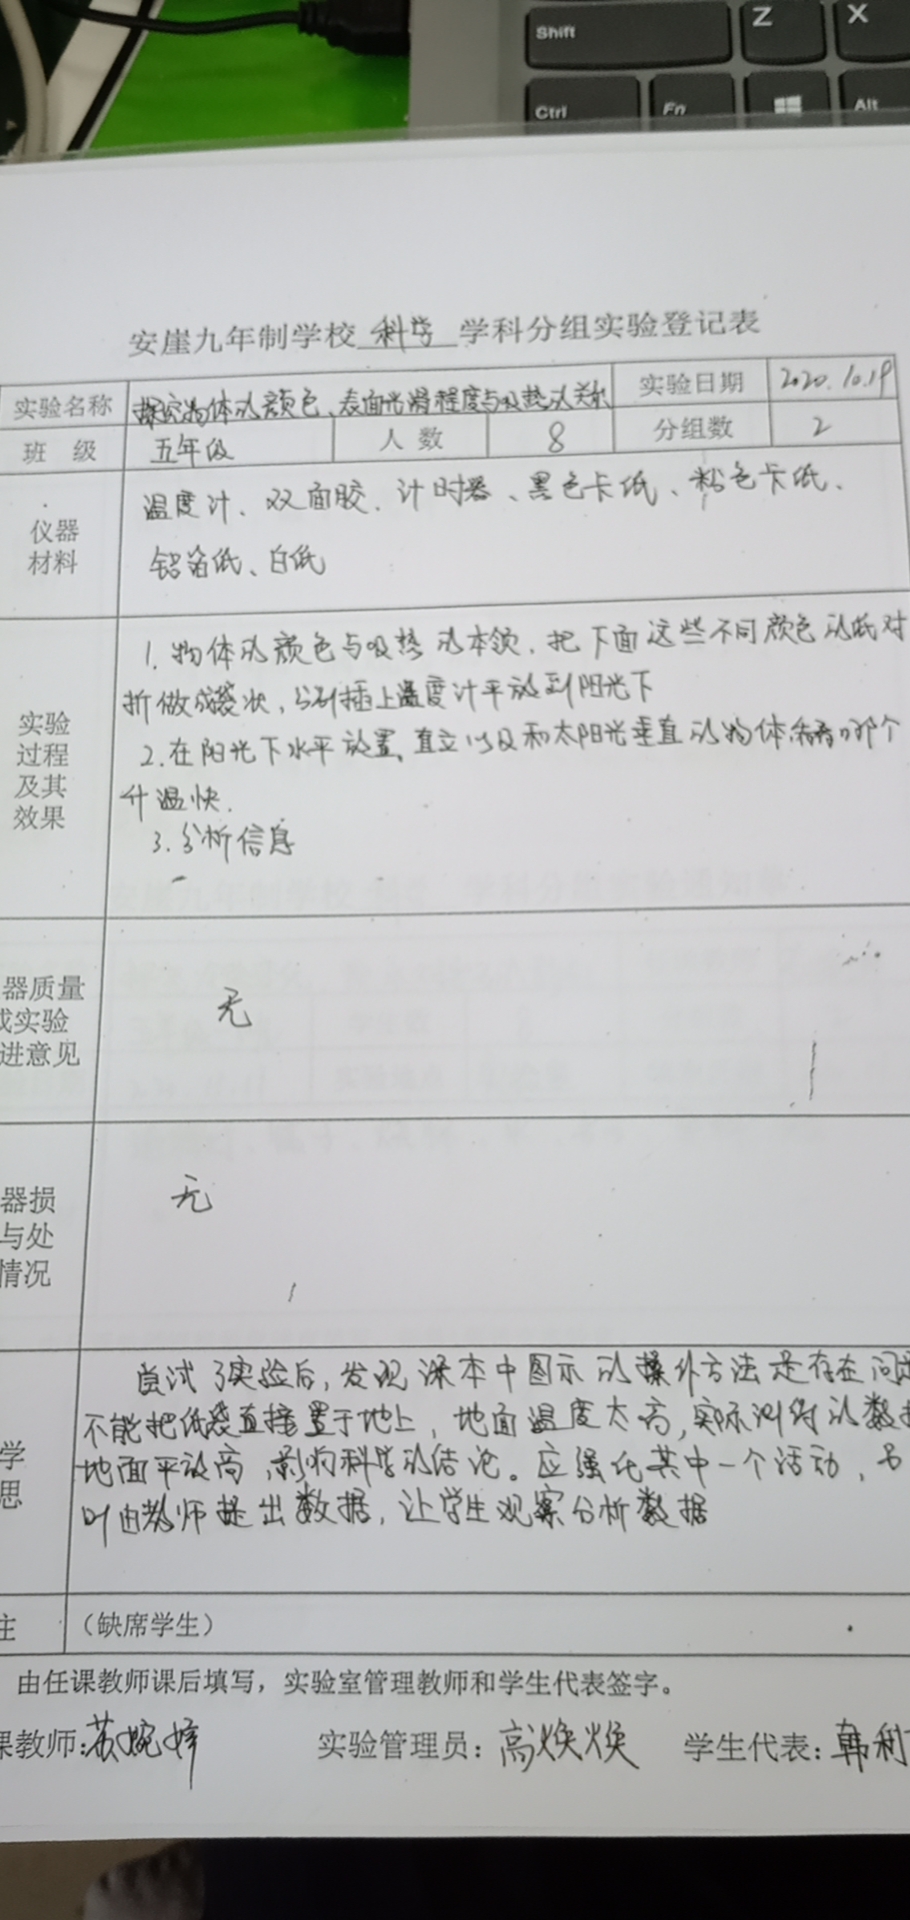 Shift
Z
X
Ctrl
Fn
Alt
安崖九年制学校 科学 学科分组实验登记表
实验名称 探究物体的颜色、表面光滑程度与吸热的关系 实验日期 2020.10.19
班 级 五年级 人 数 8 分组数 2
仪器
材料
温度计、双面胶、计时器、黑色卡纸、粉色卡纸、
铝箔纸、白纸
实验
过程
及其
效果
1. 物体的颜色与吸热的本领，把下面这些不同颜色的纸对
折做成袋状，分别插上温度计平放到阳光下
2. 在阳光下水平放置、直立以及和太阳光垂直的物体，看哪个
升温快.
3. 分析信息
器质量
或实验
进意见
无
器损
与处
情况
无
学
思
尝试了实验后，发现课本中图示的操作方法是存在问
不能把纸袋直接置于地上，地面温度太高，实际测得的数据
地面平放高，影响科学的结论。应强化其中一个活动，另
由教师提出数据，让学生观察分析数据
主 （缺席学生）
由任课教师课后填写，实验室管理教师和学生代表签字。
课教师: 实验管理员：高焕焕 学生代表：韩利